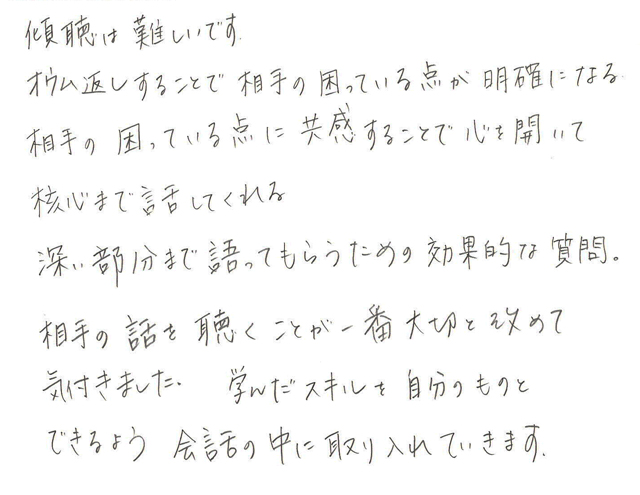 傾聴は難しいです
オウム返しすることで相手の困っている点が明確になる
相手の困っている点に共感することで心を開いて
核心まで話してくれる
深い部分まで語ってもらうための効果的な質問。
相手の話を聴くことが一番大切と改めて
気付きました. 学んだスキルを自分のものと
できるよう会話の中に取り入れていきます.